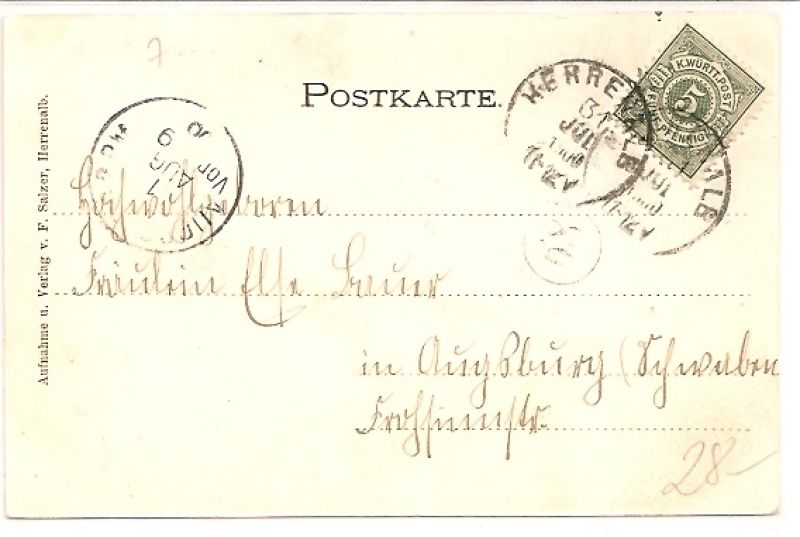 7
POSTKARTE.
K.WÜRTT.POST
5
PFENNIG
HERRENALB
31
JUL
1900
9
AUG
VOR
Hochwohlgeboren
Fräulein Else Bauer
in Augsburg (Schwaben
Frohsinnstr.
Aufnahme u. Verlag v. F. Salzer, Herrenalb.
28-